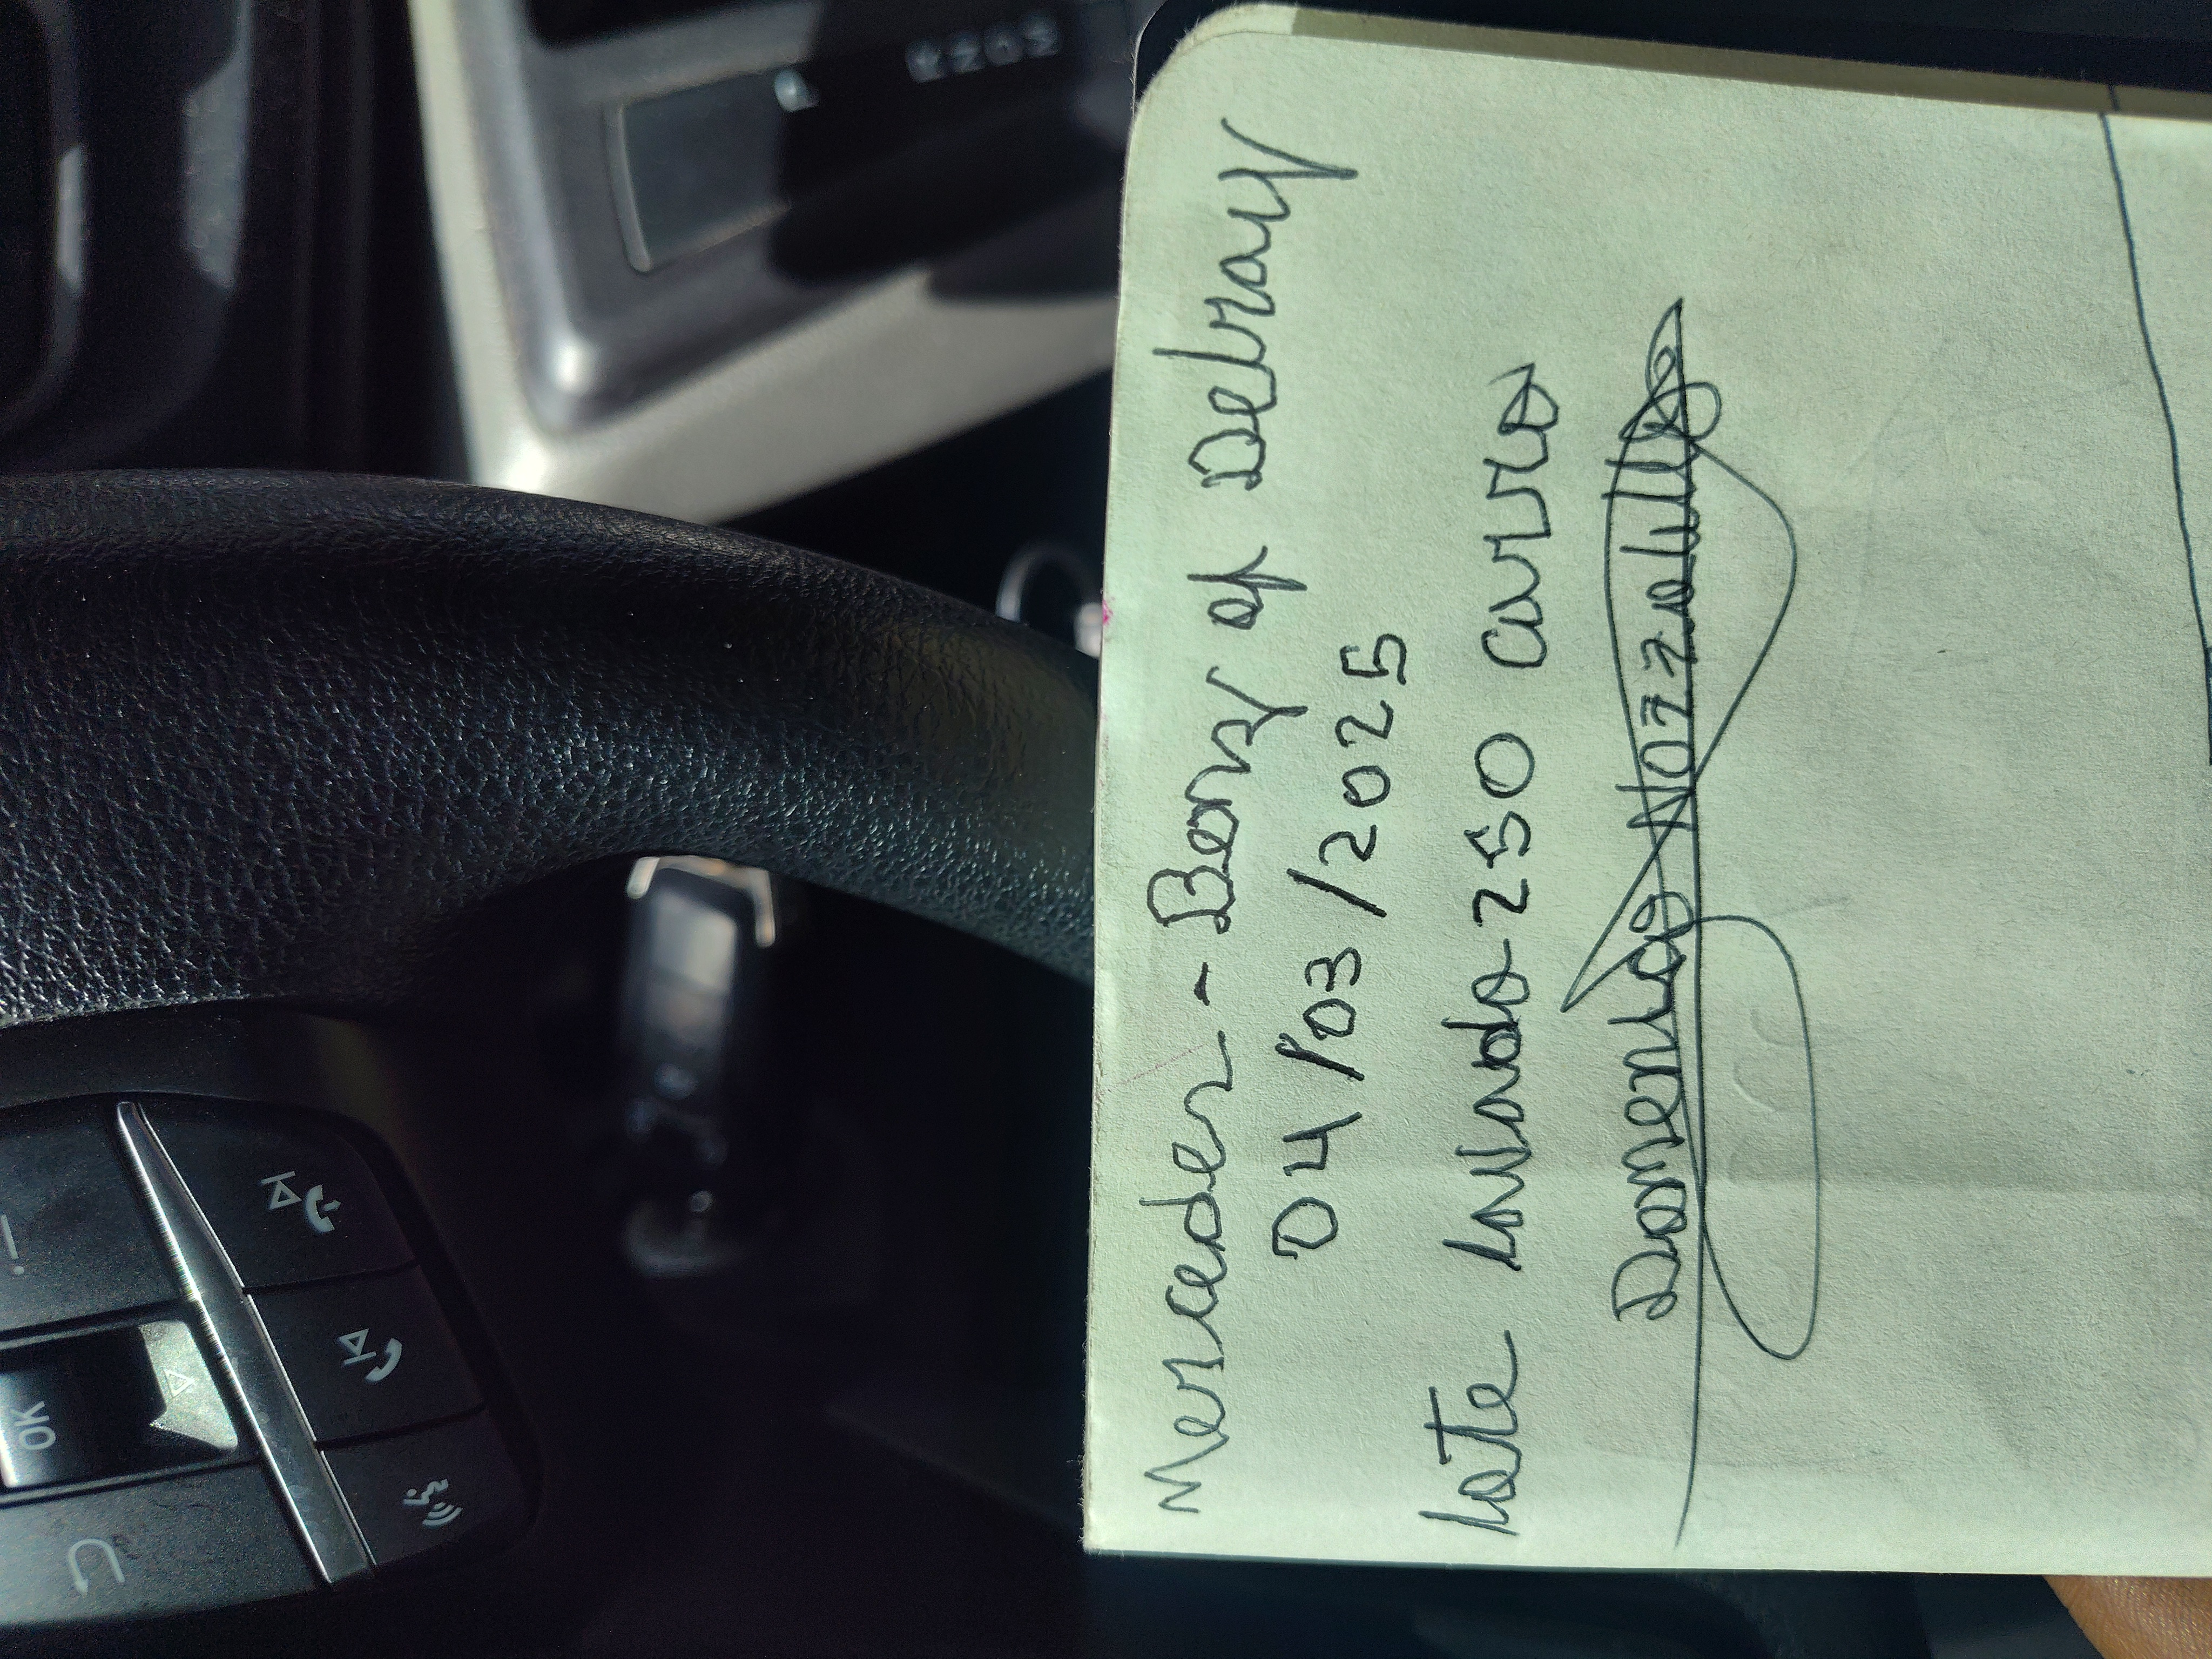 Mercedes - Benz of Delray
04/03/2025
Lote lavado-250 carros
Domenico Nozzolillo
OK
R N D M
P